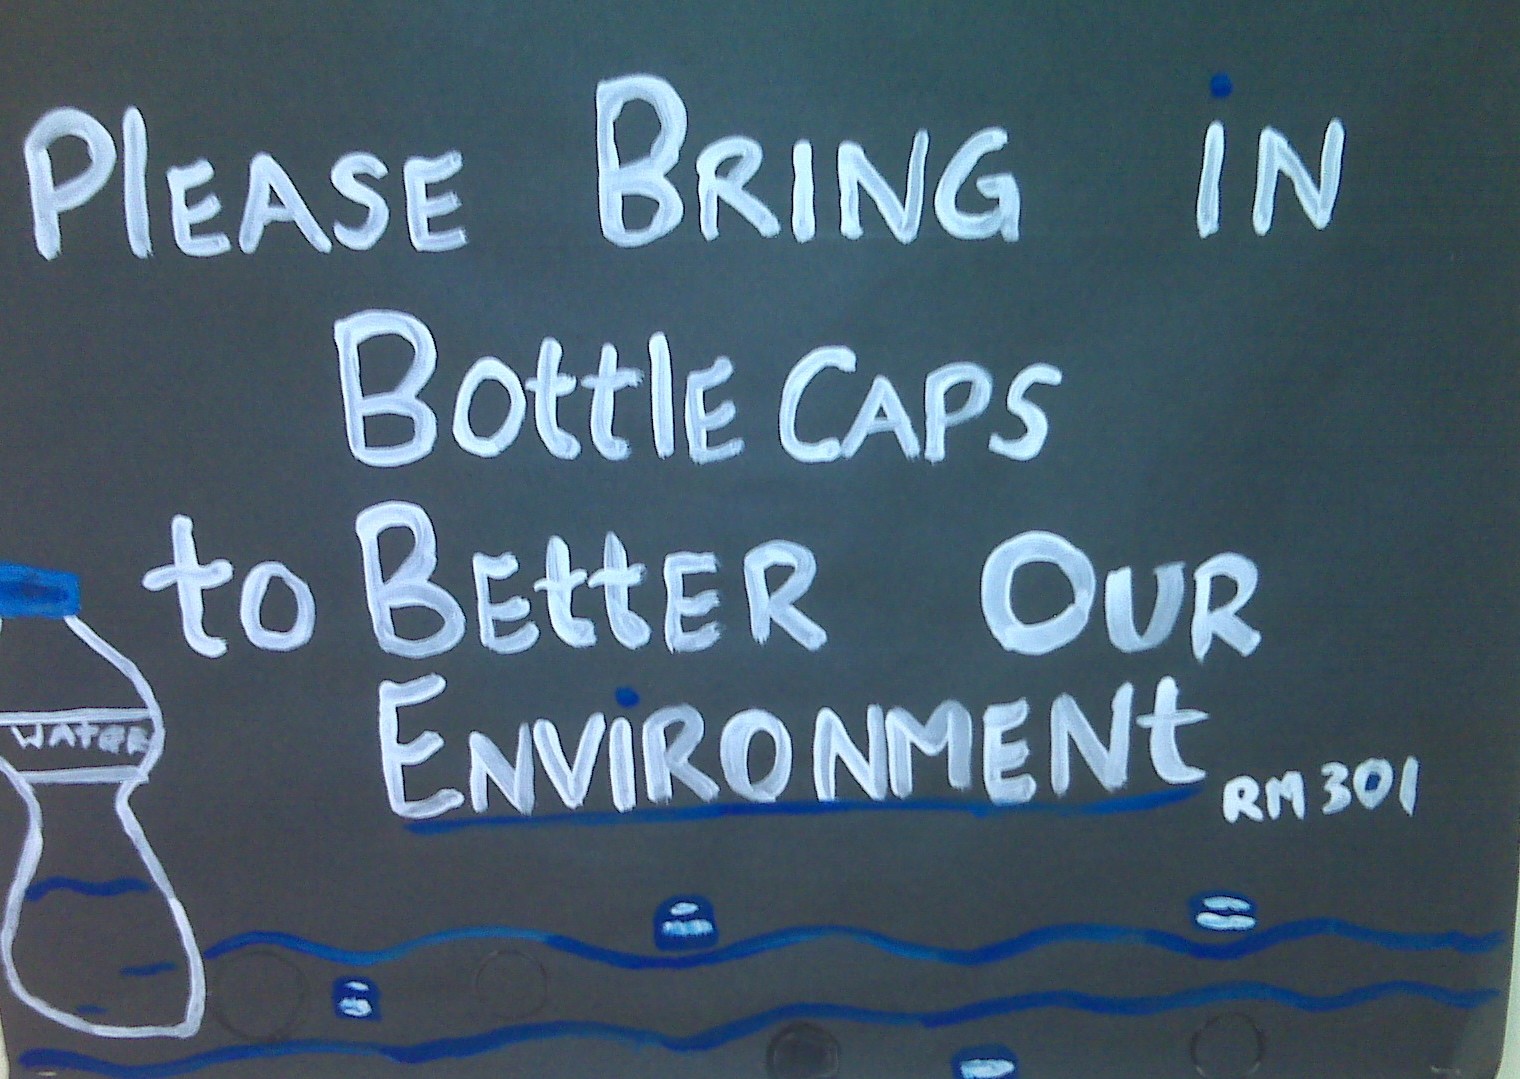 PlEASE BRING iN
BottlE CAPS
to BEttER OUR
ENViRONMENt
RM 301
WAtER